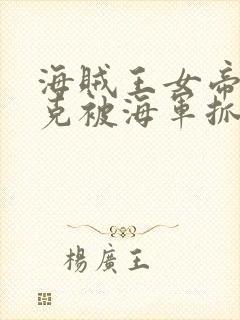 海賊王女帝
克被海軍抓
楊廣王